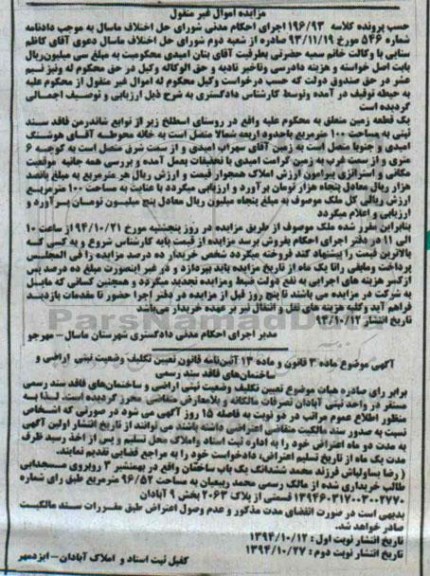 مزایده اموال غیر منقول
حسب پرونده کلاسه ۱۹۶/۹۳ اجرای احکام مدنی شورای حل اختلاف ماسال به موجب دادنامه
شماره ۵۴۶ مورخ ۹۳/۱۱/۱۹ صادره از شعبه دوم شورای حل اختلاف ماسال دعوی آقای کاظم
سنایی با وکالت خانم سعیه حضرتی بطرفیت آقای بتان امیدی محکومیت به مبلغ سی میلیون ریال
بابت اصل خواسته و هزینه دادرسی وتاخیر تادیه و حق الوکاله وکیل در حق محکوم له ونیز نیم
عشر در حق صندوق دولت که حسب درخواست وکیل محکوم له اموال غیر منقول از محکوم علیه
به حیطه توقیف در آمده وتوسط کارشناس دادگستری به شرح ذیل ارزیابی و توصیف اجمالی
گردیده است
یک قطعه زمین متعلق به محکوم علیه واقع در روستای اسطلخ زیر از توابع شاندرمن فاقد سند
ثبتی به مساحت ۱۰۰ مترمربع باحدود اربعه شمالا متصل است به خانه محوطه آقای هوشنگ
امیدی و جنوبا متصل است به زمین آقای سهراب امیدی و از سمت شرق متصل است به کوچه ۶
متری و از سمت غرب به زمین کرامت امیدی با تحقیقات بعمل آمده و بررسی همه جانبه موقعیت
مکانی و استراتژی پیرامون ارزش املاک همجوار قیمت و ارزش ریال هر مترمربع به مبلغ پانصد
هزار ریال معادل پنجاه هزار تومان برآورد و ارزیابی میگردد با عنایت به مساحت ۱۰۰ مترمربع
ارزش ریالی کل ملک موصوف به مبلغ پنجاه میلیون ریال معادل پنج میلیون تومان برآورد و
ارزیابی و اعلام میگردد
بنابراین مقرر شده ملک موصوف از طریق مزایده در روز پنجشنبه مورخ ۹۴/۱۰/۲۱ از ساعت ۱۰
الی ۱۱ در دفتر اجرای احکام بفروش برسد مزایده از قیمت پایه کارشناس شروع و به کسی که
بالاترین قیمت را پیشنهاد کند فروخته میگردد شخص خریدار ده درصد مزایده را فی المجلس
پرداخت ومابقی رانا یک ماه از تاریخ مزایده باید بپردازد و در غیر اینصورت مبلغ ده درصد پس
ازکسر هزینه های اجرایی به نفع دولت ضبط ومزایده تجدید میگردد و همچنین کسانی که مایل
به شرکت در مزایده می باشند تا پنج روز قبل از مزایده در دفتر اجرا حضور تا مقدمات بازدید
فراهم آید وکلیه هزینه های نقل و انتقال نیز بر عهده خریدار می باشد
تاریخ انتشار ۹۴/۱۰/۱۲
مدیر اجرای احکام مدنی دادگستری شهرستان ماسال- مهرجو
آگهی موضوع ماده ۳ قانون و ماده ۱۳ آئین نامه قانون تعیین تکلیف وضعیت ثبتی اراضی و
ساختمان‌های فاقد سند رسمی
برابر رای صادره هیات موضوع تعیین تکلیف وضعیت ثبتی اراضی و ساختمان‌های فاقد سند رسمی
مستقر در واحد ثبتی آبادان تصرفات مالکانه و بلامعارض متقاضی محرز گردیده است. لذا به
منظور اطلاع عموم مراتب در دو نوبت به فاصله ۱۵ روز آگهی می شود در صورتی که اشخاص
نسبت به صدور سند مالکیت متقاضی اعتراضی داشته باشند می توانند از تاریخ انتشار اولین آگهی
به مدت دو ماه اعتراض خود را به اداره ثبت اسناد واملاک محل تسلیم و پس از اخذ رسید ظرف
مدت یک ماه از تاریخ تسلیم اعتراض، دادخواست خود را به مراجع قضایی تقدیم نمایند.
( رضا بساولیائی فرزند محمد ششدانگ یک باب ساختمان واقع در بهمنشیر ۳ روبروی مسجدابی
طالب خریداری شده از مالک رسمی محمد ربیعیان به مساحت ۹۶/۵۲ مترمربع طبق رای شماره
۱۳۹۴۶۰۳۱۷۰۰۳۰۰۲۷۷۰ قسمتی از پلاک ۲۰۶۳ بخش ۹ آبادان
بدیهی است در صورت انقضای مدت مذکور و عدم وصول اعتراض طبق مقررات سند مالکیت
صادر خواهد شد.
تاریخ انتشار نوبت اول: ۱۳۹۴/۱۰/۱۲
تاریخ انتشار نوبت دوم: ۱۳۹۴/۱۰/۲۷
کفیل ثبت اسناد و املاک آبادان- ایزدمهر